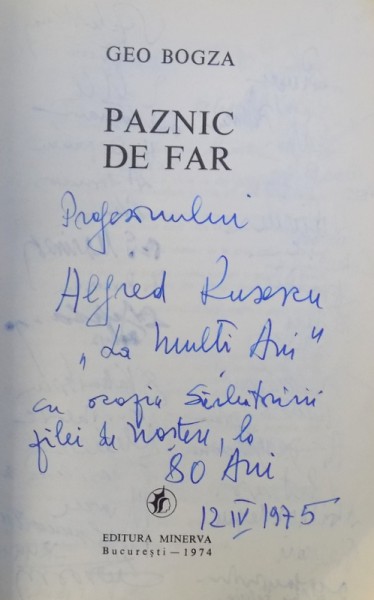 GEO BOGZA
PAZNIC
DE FAR
Profesorului
Alfred Rusescu
„La Multi Ani"
cu ocazia Sărbătoririi
zilei de Naștere, la
80 Ani
12 IV 1975
EDITURA MINERVA
București — 1974